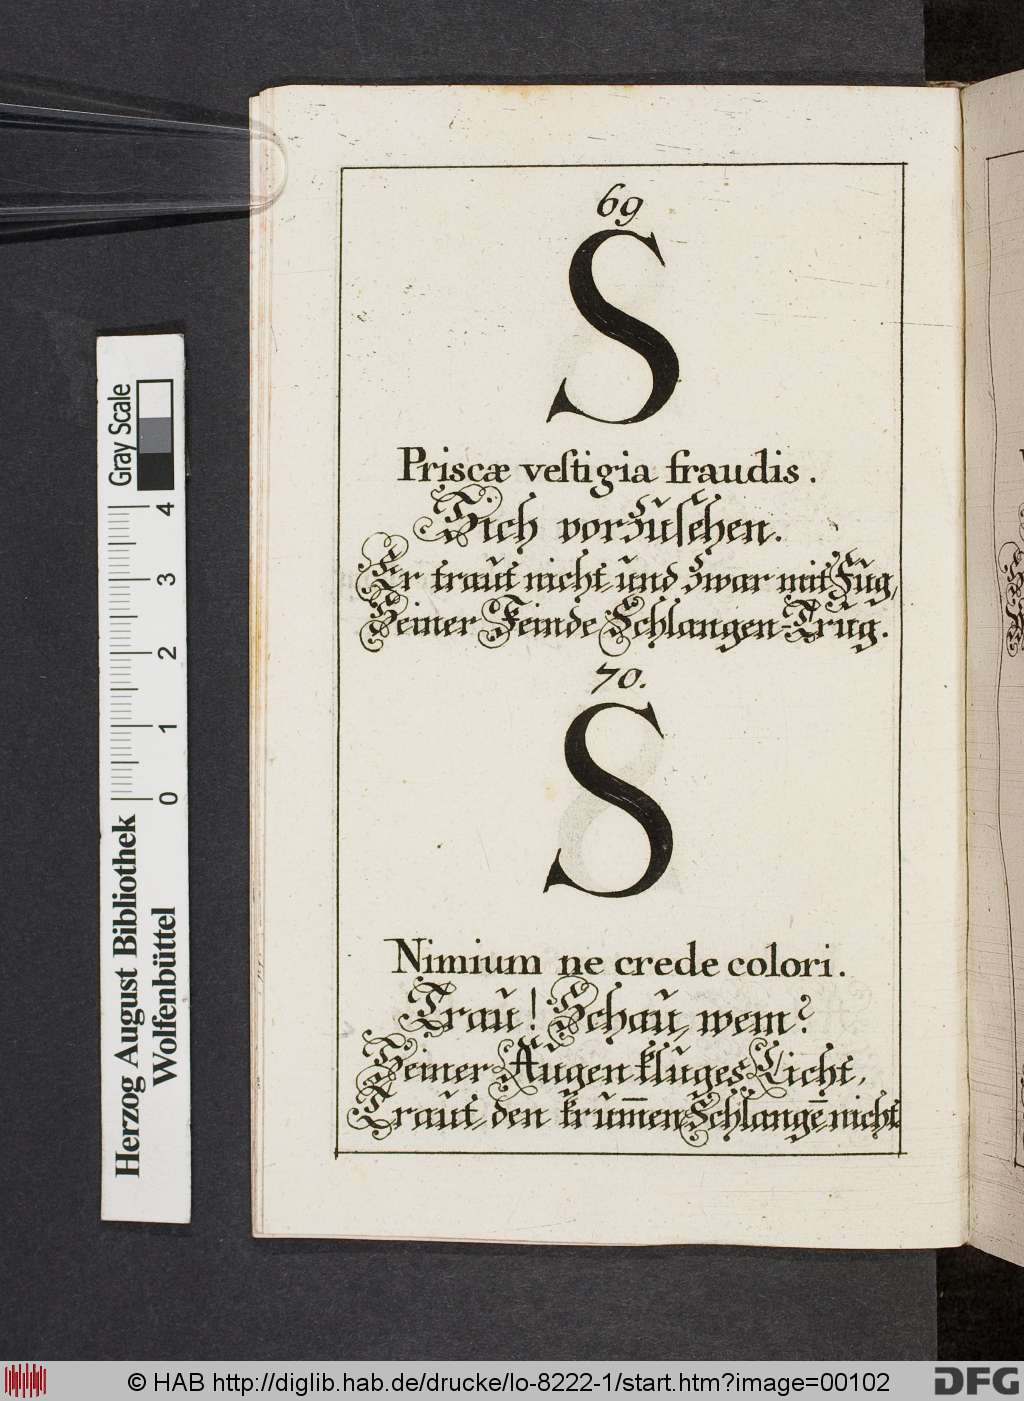 69
S
Priscæ veſtigia fraudis.
Sich vorzuſehen.
Er traut nicht, und zwar mit Fug,
Seiner Feinde Schlangen-Trug.
70.
S
Nimium ne crede colori.
Trau! Schau, wem?
Seiner Augen kluges Licht,
Traut den krum̅en Schlange̅ nicht
Gray Scale
0 1 2 3 4
Herzog August Bibliothek
Wolfenbüttel
© HAB http://diglib.hab.de/drucke/lo-8222-1/start.htm?image=00102
DFG